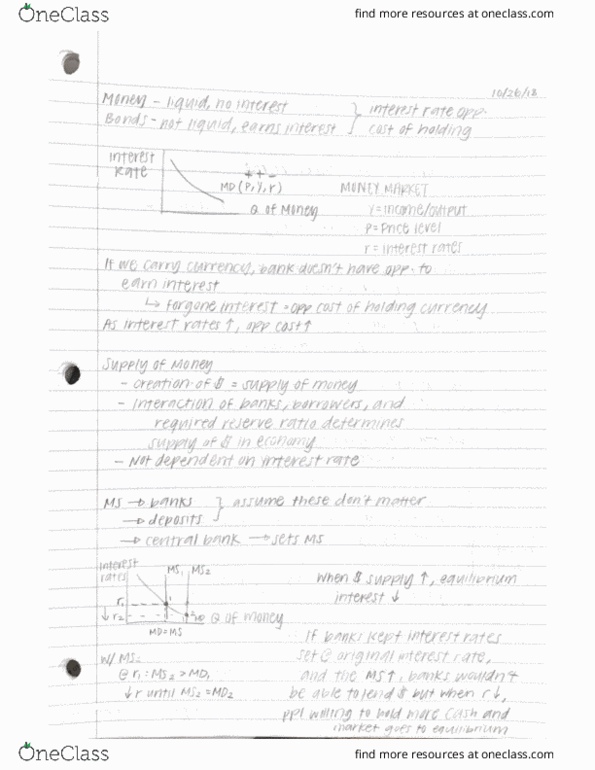 OneClass
find more resources at oneclass.com
10/26/18
Money - liquid, no interest } interest rate opp.
Bonds - not liquid, earns interest } cost of holding
Interest
Rate
+ + -
MD (P, Y, r)
Q of Money
MONEY MARKET
Y = income/output
P = Price level
r = interest rates
If we carry currency, bank doesn't have opp. to
earn interest
↳ Forgone interest = opp cost of holding currency
As interest rates ↑, opp cost ↑
Supply of Money
- creation of $ = supply of money
- Interaction of banks, borrowers, and
required reserve ratio determines
supply of $ in economy
- Not dependent on interest rate
MS → banks } assume these don't matter
→ deposits
→ central bank → sets MS
Interest
rates
MS1 MS2
r1
↓ r2
Q of money
MD=MS
When $ supply ↑, equilibrium
interest ↓
w/ MS2
@ r1: MS2 > MD,
↓r until MS2 = MD2
If banks kept interest rates
set @ original interest rate,
and the MS↑, banks wouldn't
be able to lend $ but when r↓,
ppl willing to hold more cash and
market goes to equilibrium
OneClass
find more resources at oneclass.com